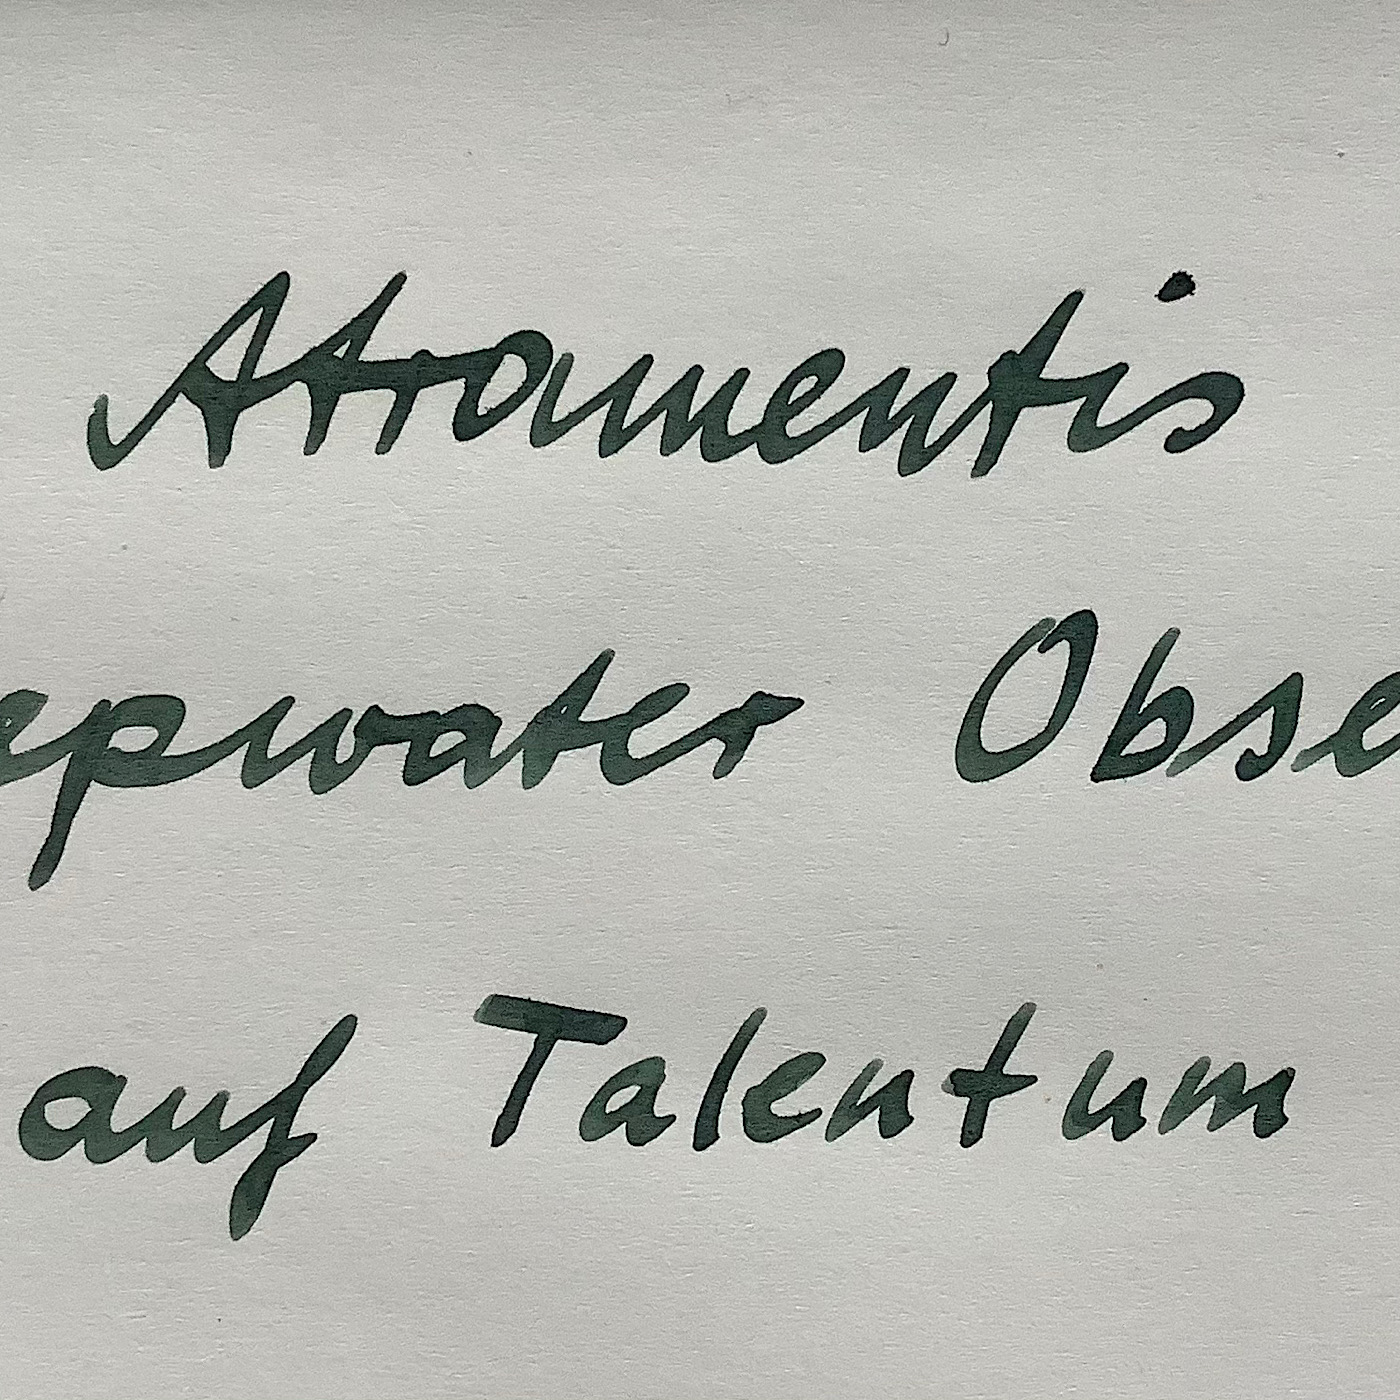 Atramentis
epwater Obse
auf Talentum